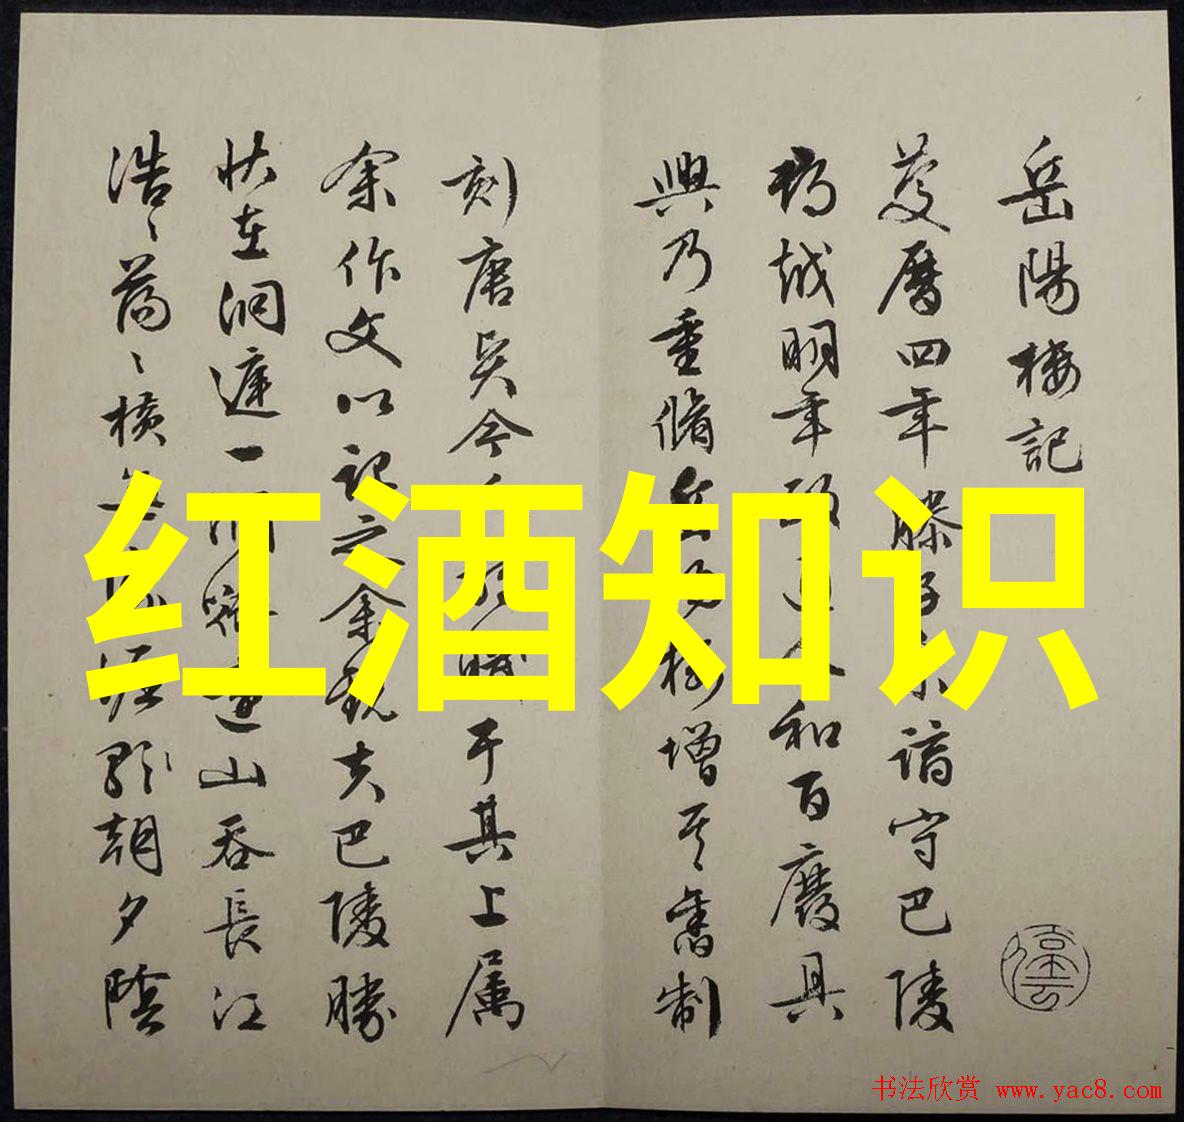 岳陽樓記
慶曆四年滕子京謫守巴陵
郡越明年政通人和百廢具
興乃重脩岳陽樓增其舊制
刻唐賢今人詩賦于其上屬
余作文以記之余觀夫巴陵勝
狀在洞庭一湖銜遠山吞長江
浩〻蕩〻橫無際涯朝夕陰
红酒知识
书法欣赏 www.yac8.com